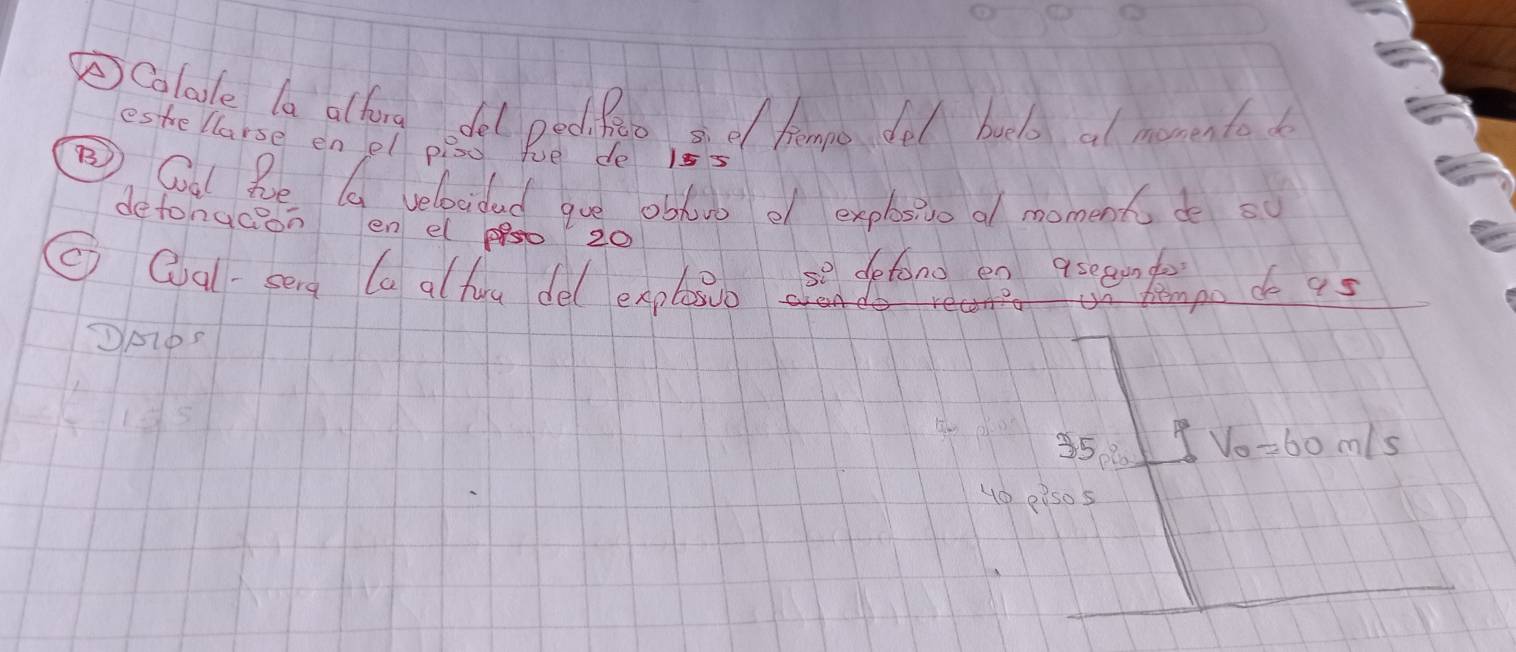 A Calcule la altura del pedificio si el tiempo del buelo al momento de
estrellarse en el piso fue de 15 s
B Cual fue la velocidad que obtuvo el explosivo al momento de su
detonación en el piso 20
C Cual sera la altura del explosivo si detono en 9 segundos
cuando recorria un tiempo de 9 s
DATOS
15 s
35 piso
Vo = 60 m/s
40 pisos